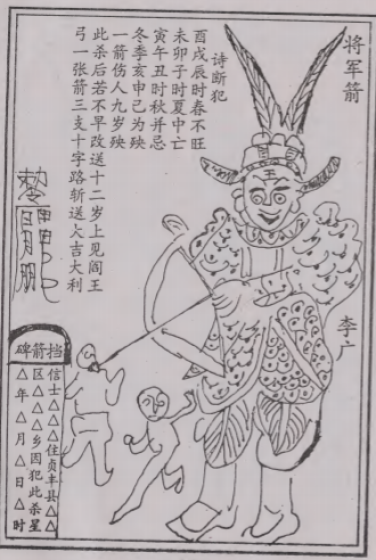 将军箭
诗断犯
酉戌辰时春不旺
未卯子时夏中亡
寅午丑时秋并忌
冬季亥申己为殃
一箭伤人九岁殃
此杀后若不早改送十二岁上见阎王
弓一张箭三支十字路斩送大吉大利
王
李广
挡箭碑
信士△△△住贞丰县△△
区△△△乡因犯此杀星
△年△月△日△时